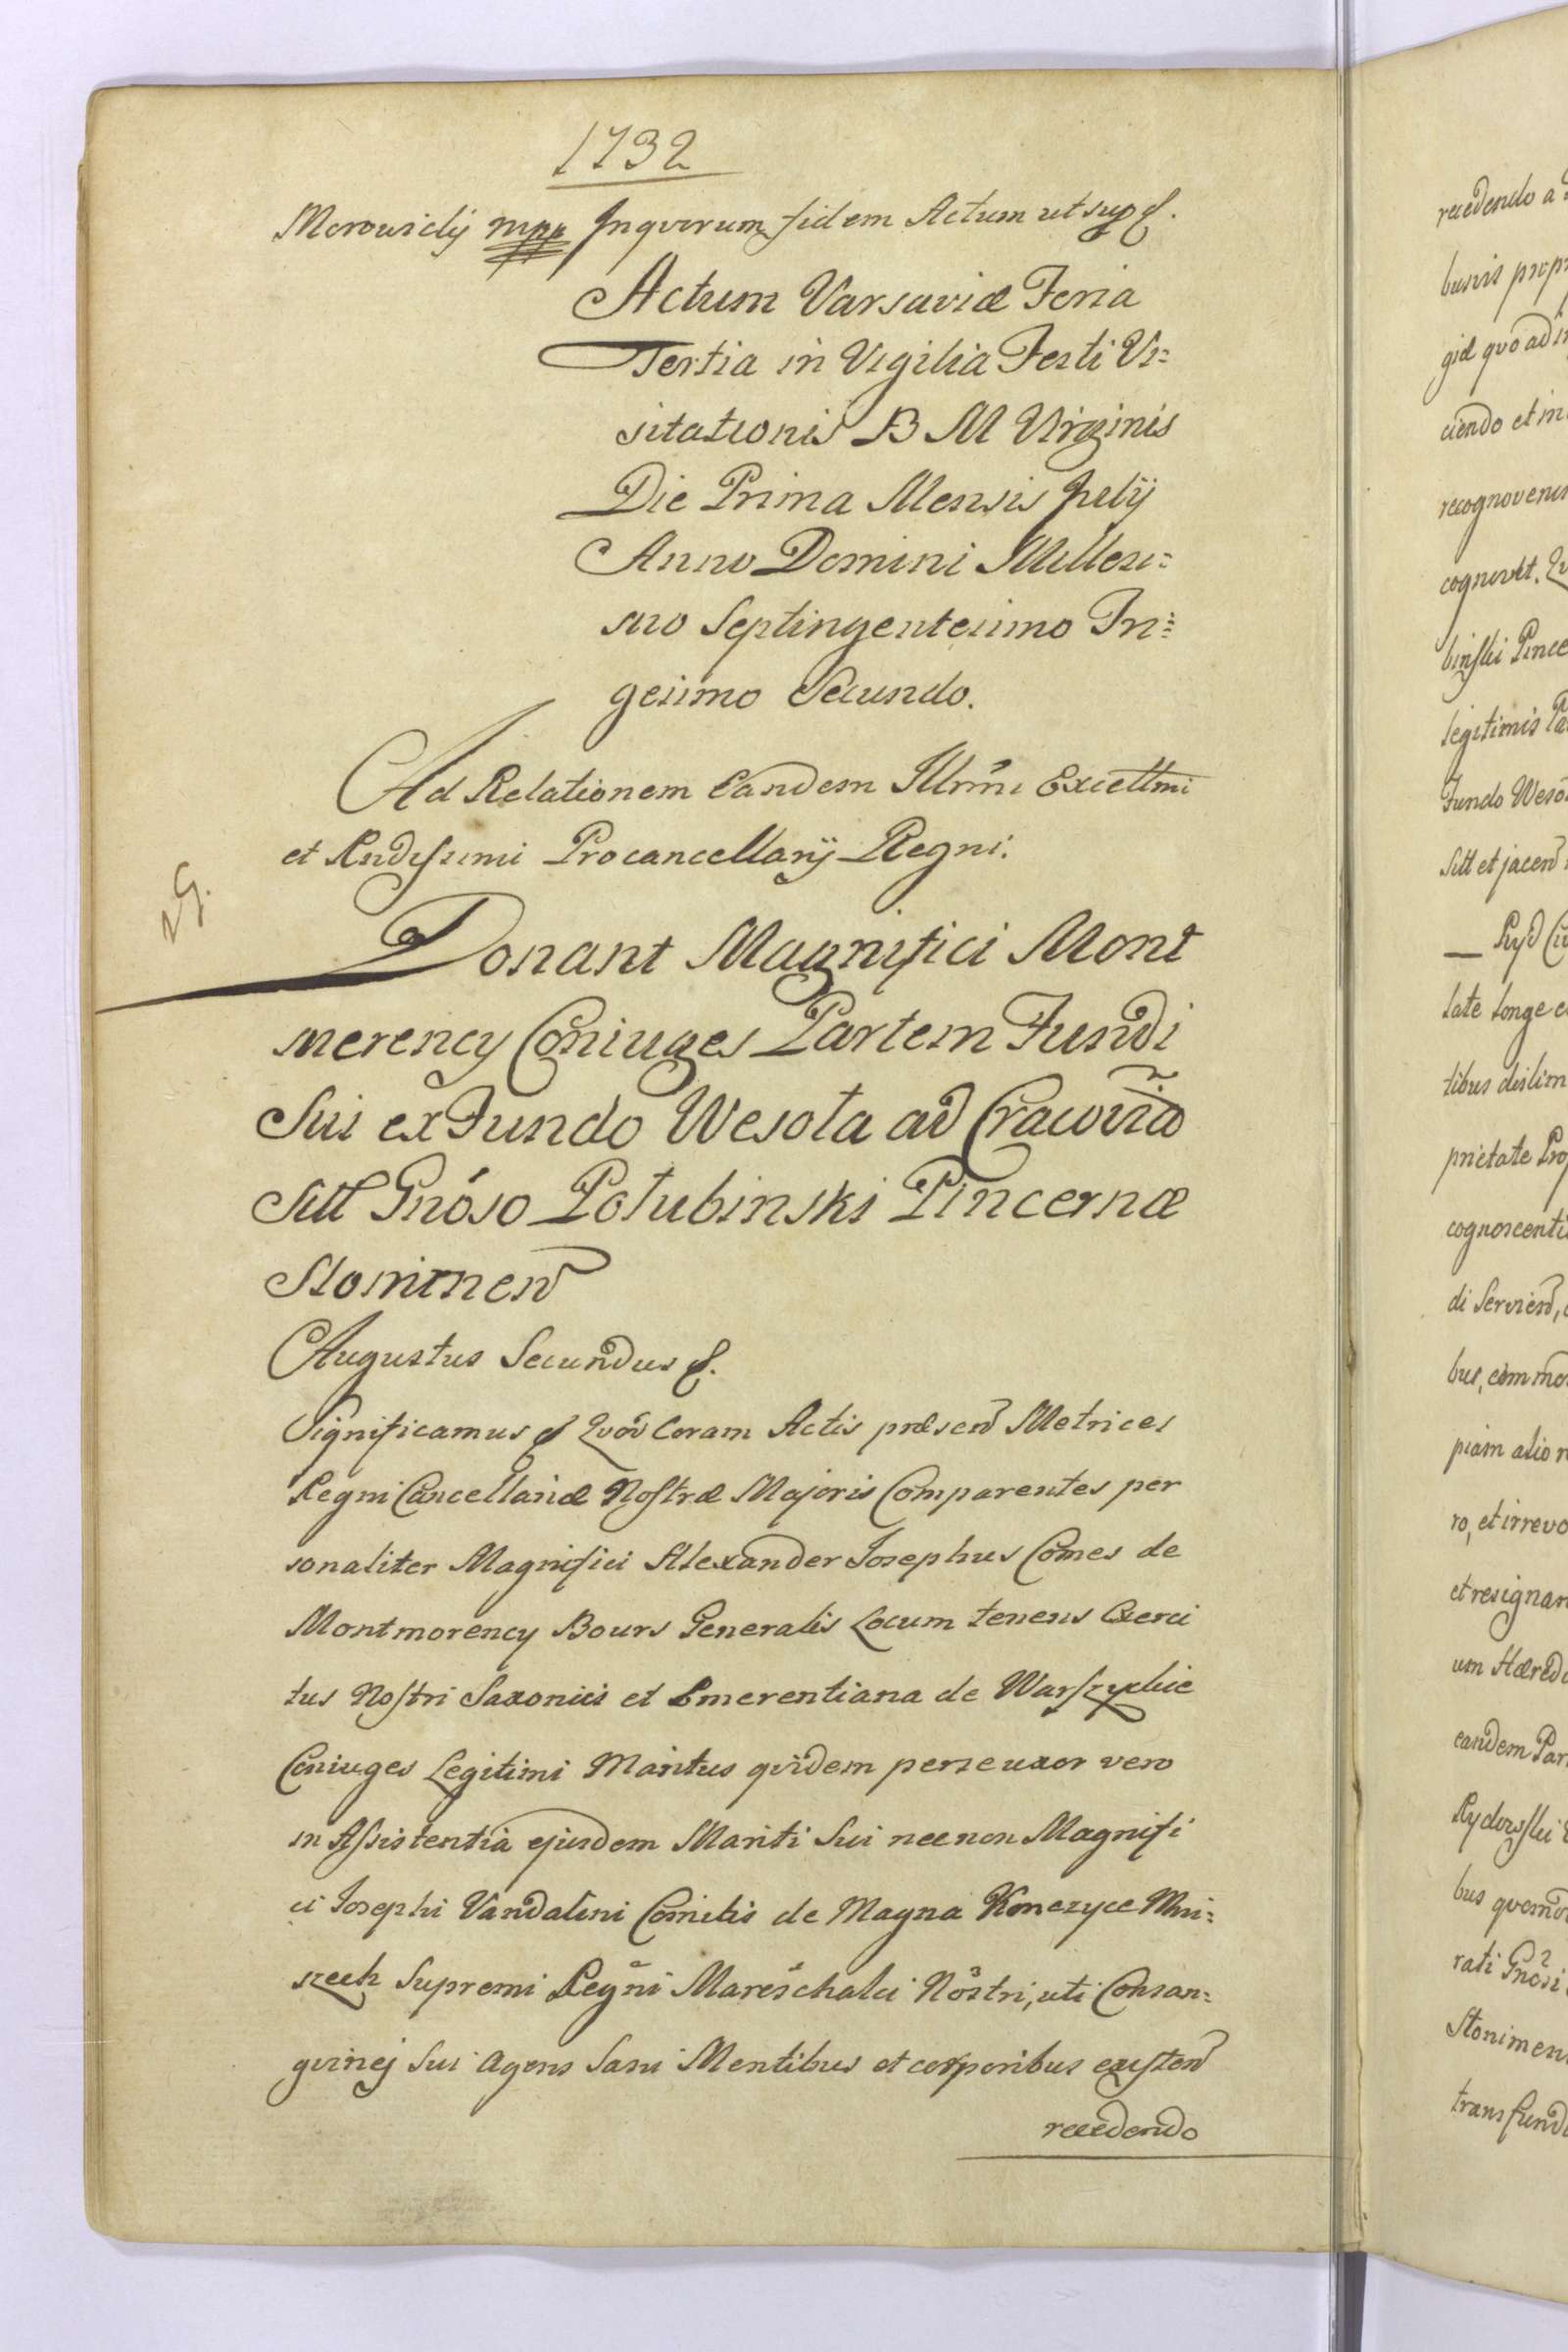 1732
Morowicly mpp Inqvorum fidem Actum ut sup &.
Actum Varsaviæ Feria
Tertia in Vigilia Festi Vi=
sitationis B M Virginis
Die Prima Mensis Julij
Anno Domini Millesi=
mo Septingentesimo Tri=
gesimo Secundo.
Ad Relationem Eandem Illmi Excellmi
et Rndissimi Procancellarij Regni.
29.
Donant Magnifici Mont
merency Coniuges Partem Fundi
Sui ex Fundo Wesoła ad Cracovia
Sitt Gnoso Połubinski Pincernæ
Słonimen
Augustus Secundus &.
Significamus & Qvod Coram Actis præsen Metrices
Regni Cancellariæ Nostræ Majoris Comparentes per
sonaliter Magnifici Alexander Josephus Comes de
Montmorency Bours Generalis Locum tenens Exerci
tus Nostri Saxonici et Emerentiana de Warszyckie
Coniuges Legitimi Maritus qvidem per se uxor vero
in Assistentia ejusdem Mariti Sui necnon Magnifi
ci Josephi Vandalini Comitis de Magna Konczyce Mni=
szech Supremi Regni Mareschalci Nostri, uti Consan=
gvinej Sui agens Sani Mentibus et corporibus existen
recedendo
recedendo a
busvis prop
giæ qvo ad
ciendo et in
recognoverunt
cognovit.
binski Pince
legitimis
Fundo Weso
Sitt et jacen
late longe
tibus dislim
prietate Pro
cognoscenti
di Servien,
bus, commo
piam alio
ro, et irrevo
et resignan
um Hæred
eandem Par
Rydowski
bus qvom
rati Gnosi
Słonimen
transfund